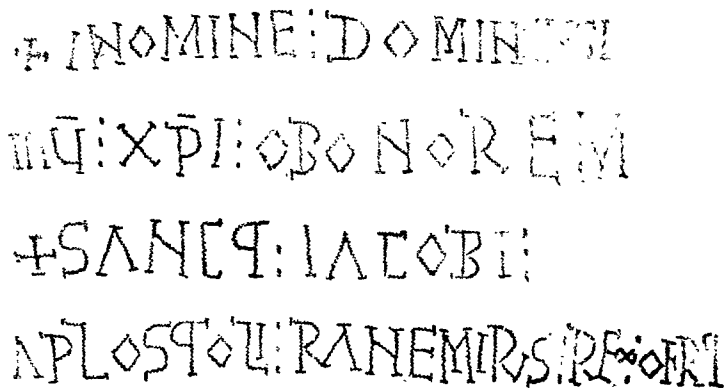 + INOMINE : DOMINI
X̅P̅I : OBONOREM
+ SANCT : IACOBI :
APLOSTOLI : RANEMIRUS : REX OFRT